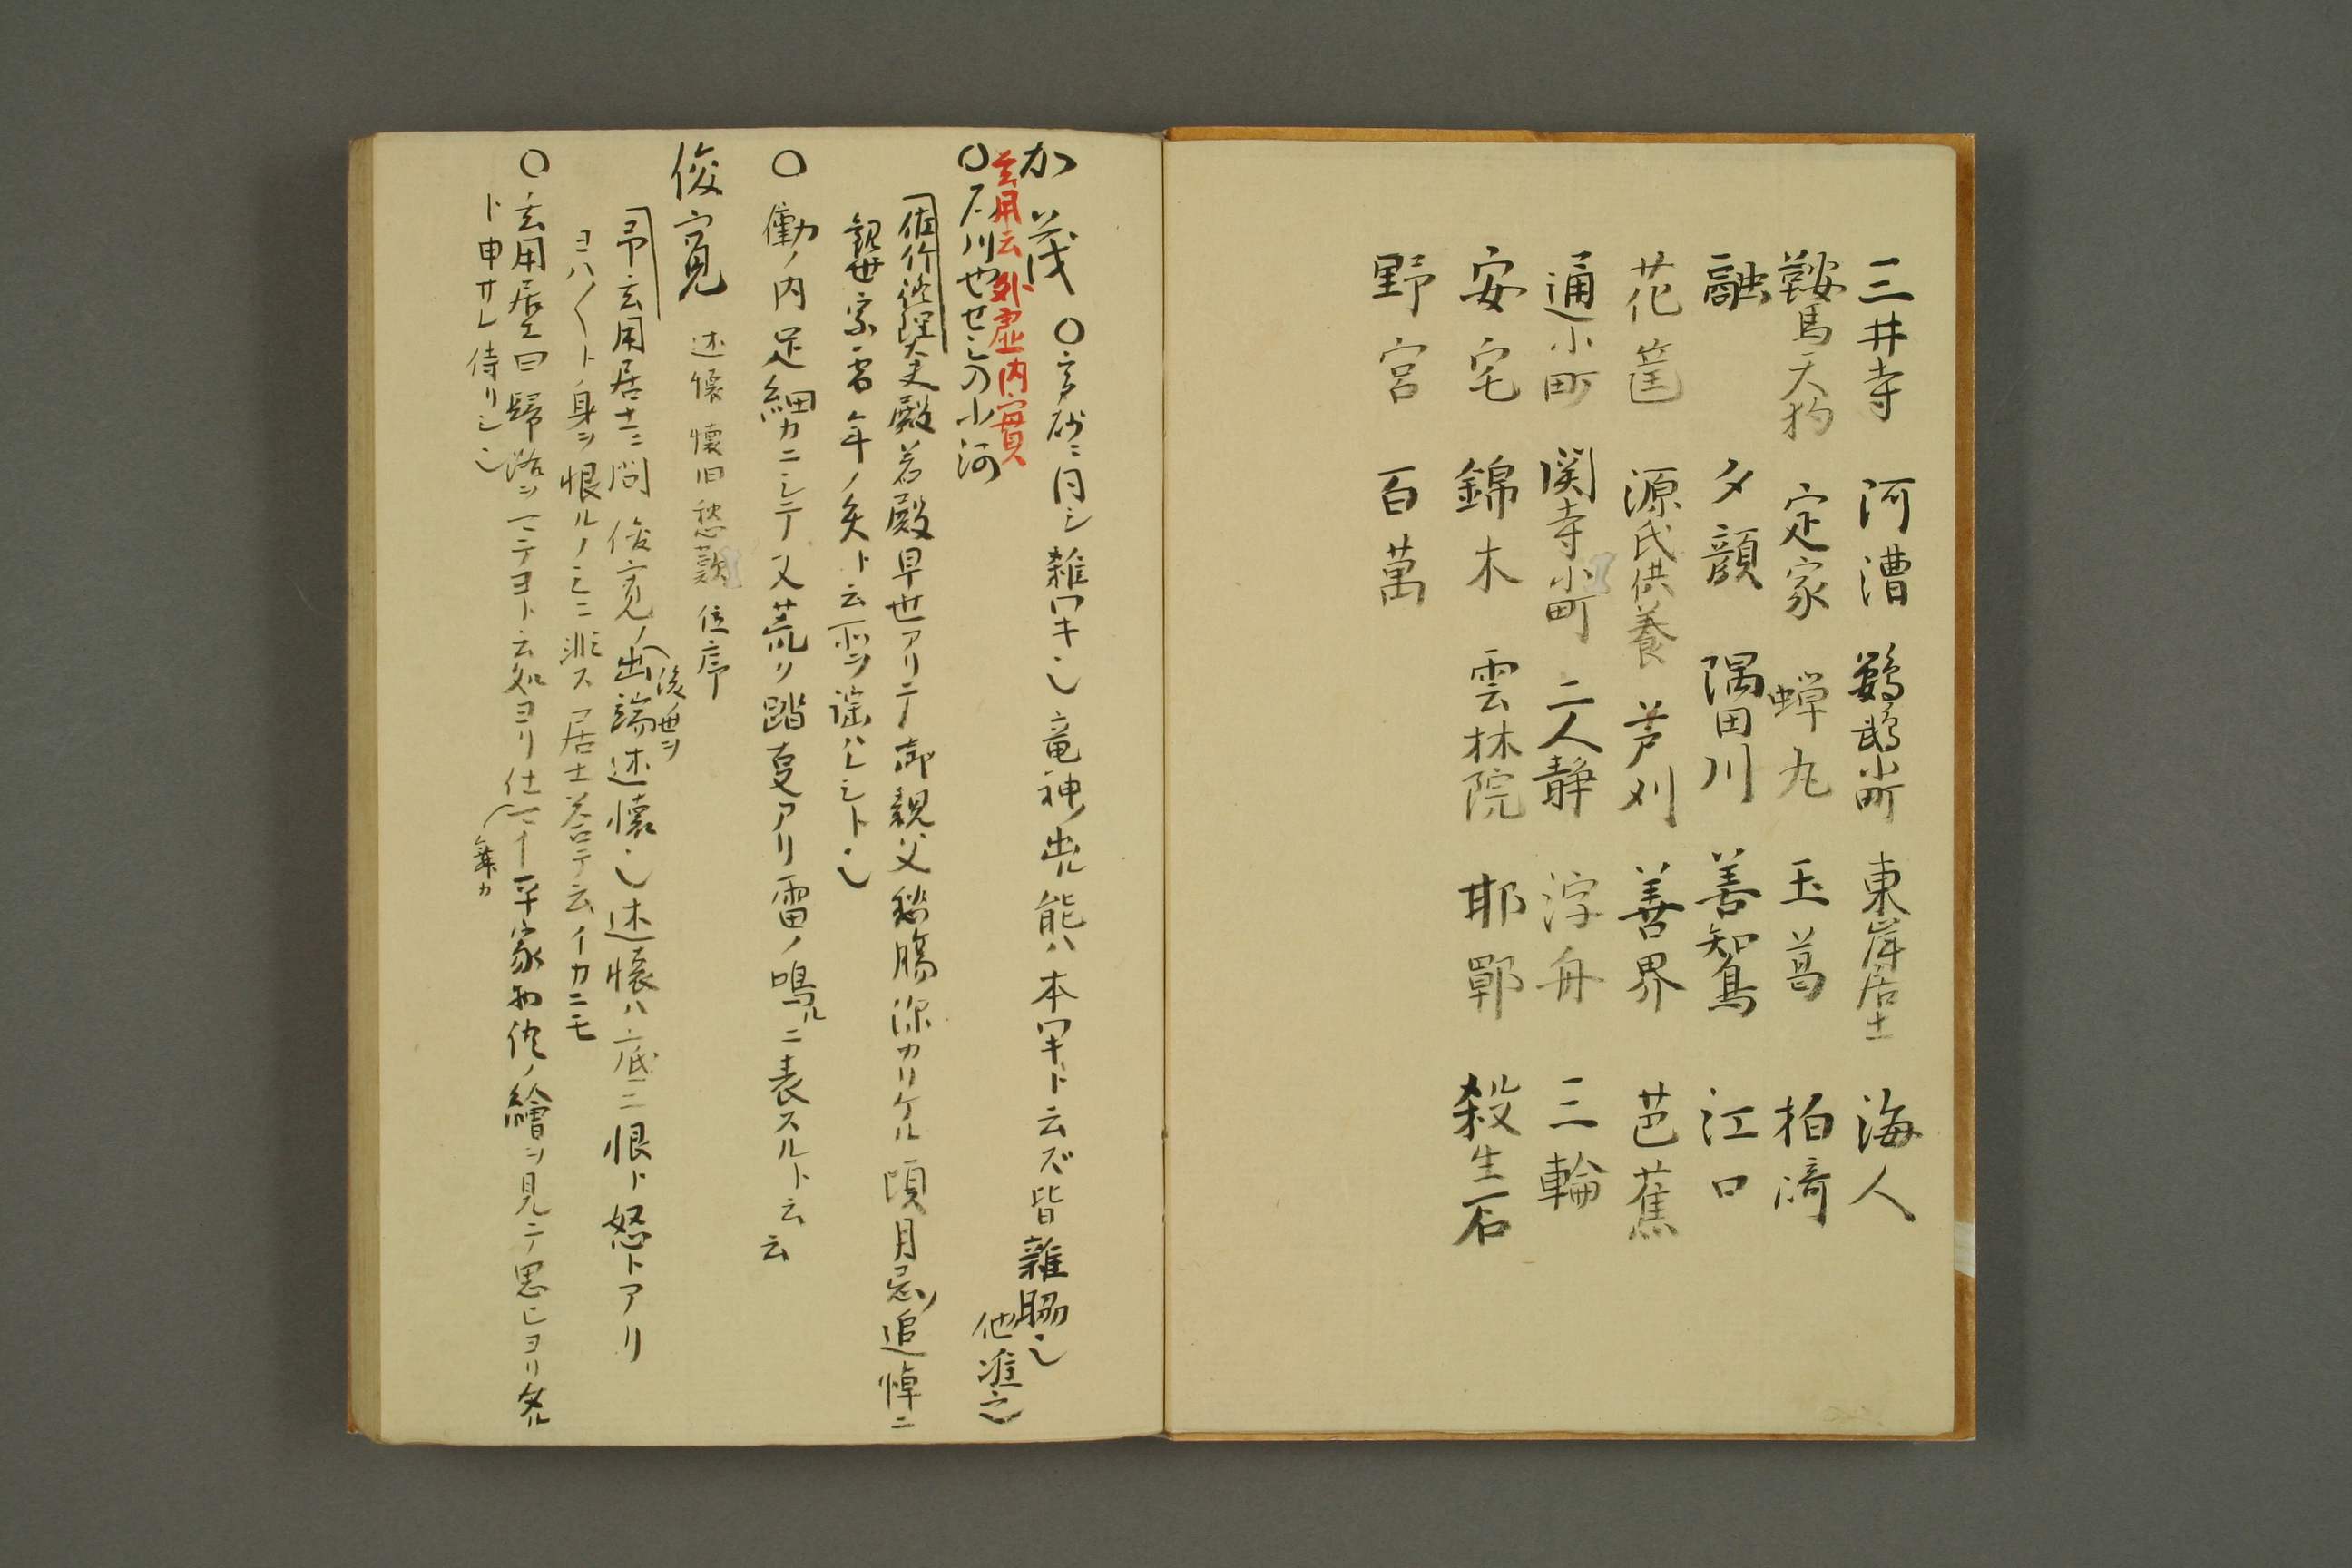 三井寺 河漕 鸚鵡小町 東岸居士 海人
鞍馬天狗 定家 蝉丸 玉葛 柏﨑
融 夕顔 隅田川 善知鳥 江口
花筐 源氏供養 芦刈 善界 芭蕉
通小町 関寺小町 二人静 浮舟 三輪
安宅 錦木 雲林院 耶鄲 殺生石
野宮 百萬
加茂 〇高砂ニ同シ雑ワキ也 竜神出ル能ハ本ワキト云ズ皆雑脇也
他准之
玄用云外虚内實
〇石川やせミの小河
殿若殿早世アリテ御親父愁腸深カリケル頃月忌ノ追悼ニ
観世宗雪年ノ矢ト云所ヲ謡ハレシト也
〇働ノ内足細カニシテ又荒ク踏事アリ雷ノ鳴ルニ表スルト云云
俊寛 述懐 懐旧愁歎 位序
予玄用居士ニ問 俊寛ノ出端述懐也述懐ハ底ニ恨ト怒トアリ
後世ヲ
ヨハ〱ト身ヲ恨ルノミニ非ス居士答テ云イカニモ
〇玄用居士曰帰洛ヲ ニテヨト云処ヨリ仕 平家物語ノ繪ヲ見テ思ヒヨリタル
舞カ
ト申サレ侍リシ也